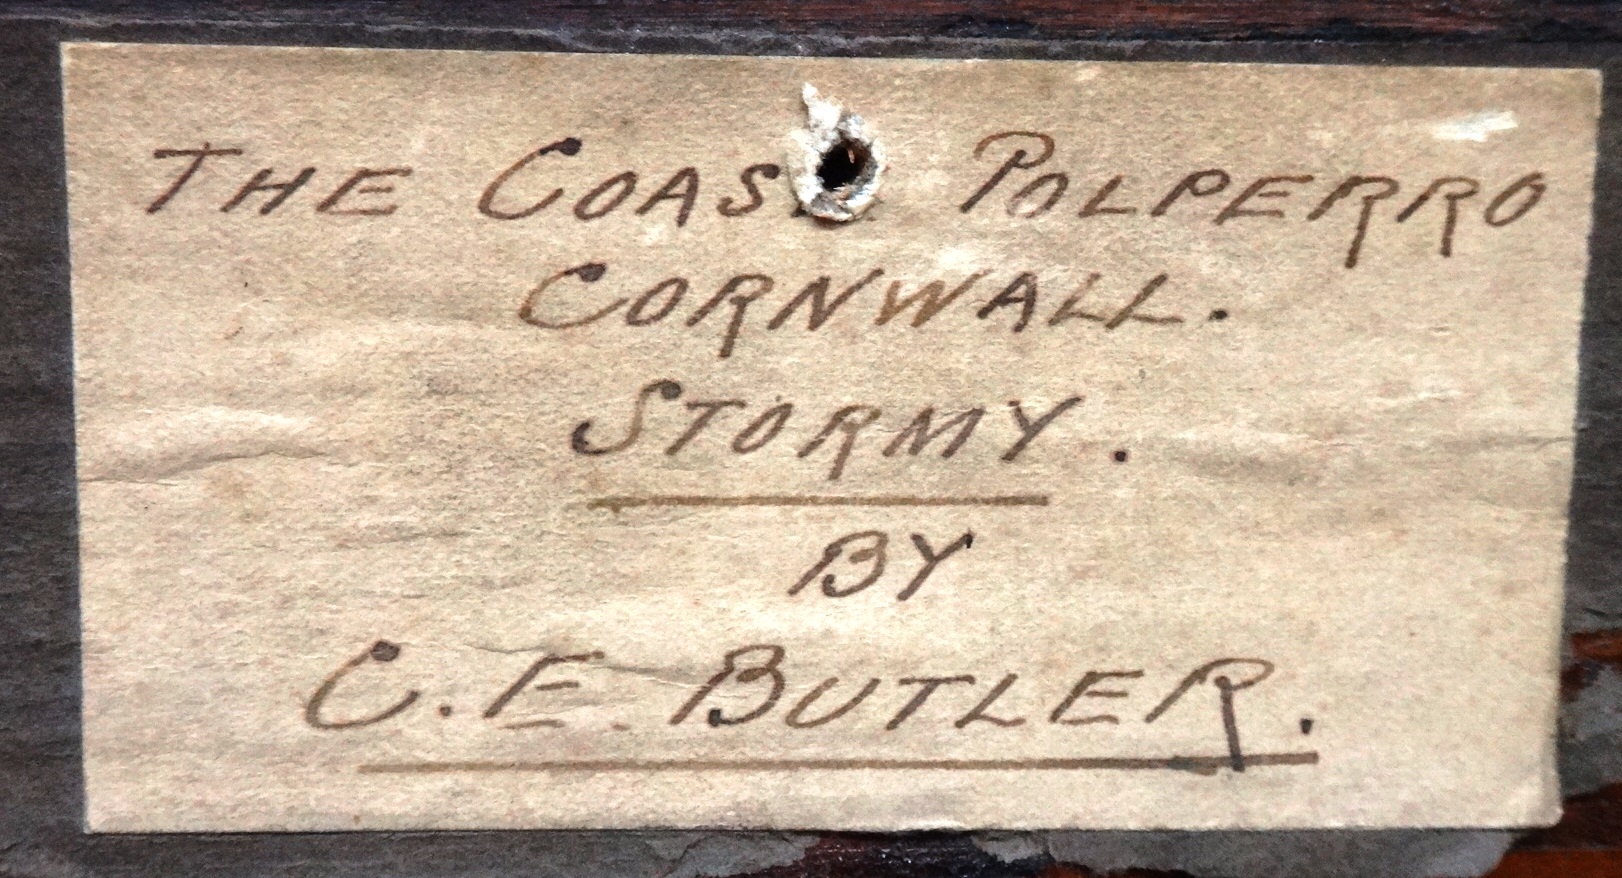 THE COAS. POLPERRO
CORNWALL.
STORMY.
BY
C. E. BUTLER.